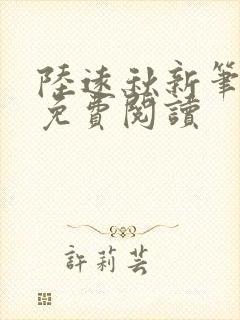 陸遠秋新筆
免費閱讀
許莉芸